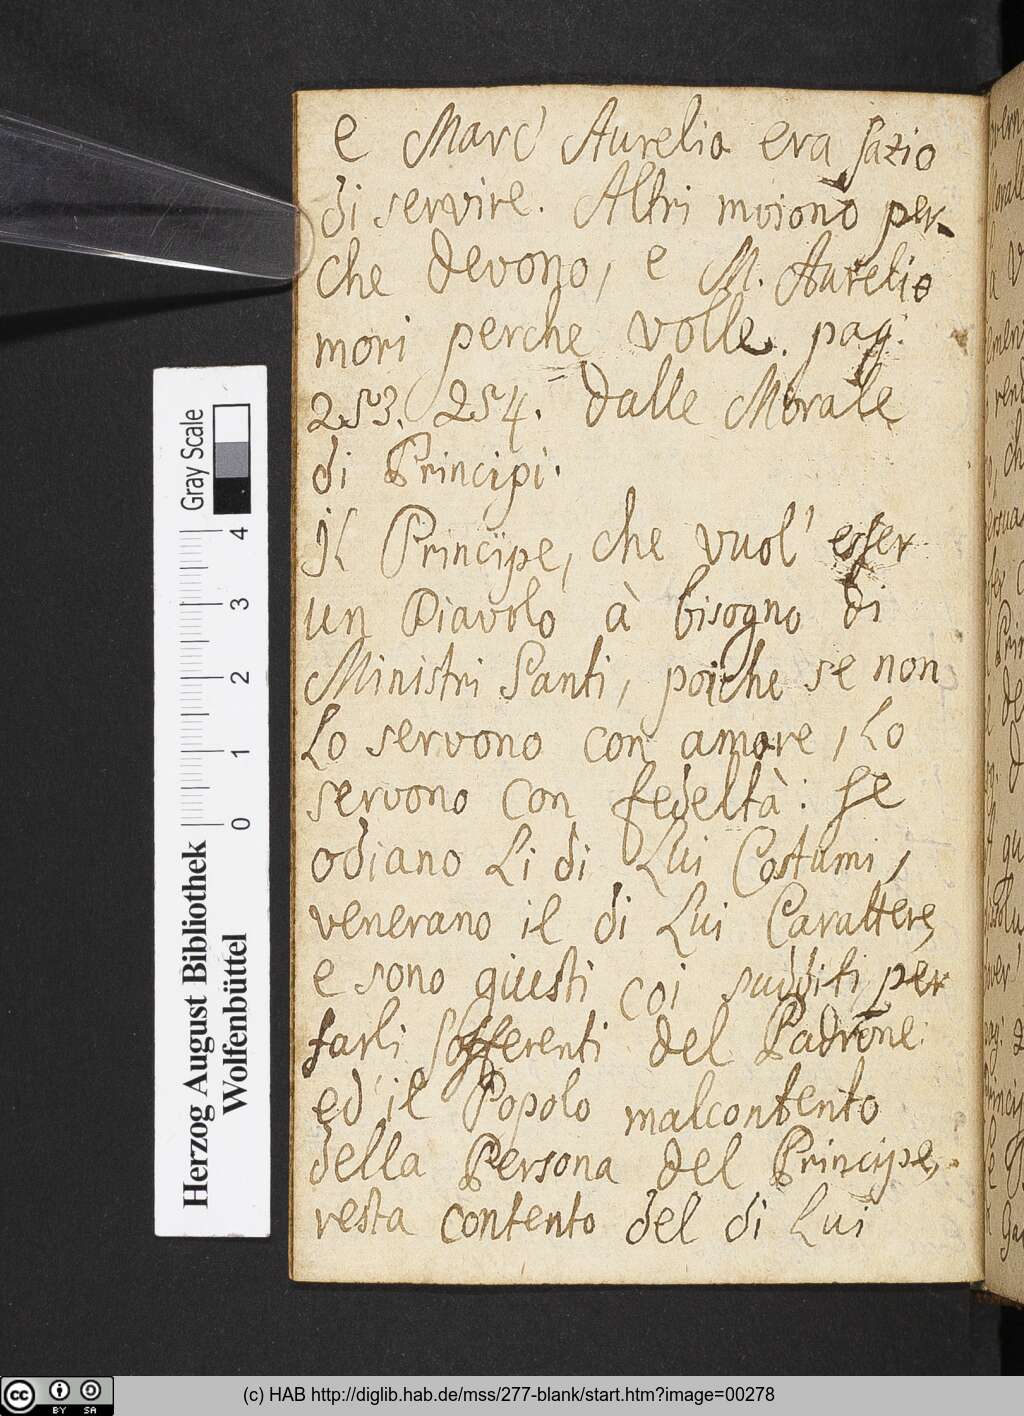 e Marc' Aurelio era sazio
di servire. Altri moiono per-
che devono, e M. Aurelio
mori perche volle. pag.
253. 254. dalle Morale
di Principi.
Il Principe, che vuol' esser
un Diavolo à bisogno di
Ministri Santi, poiche se non
Lo servono con amore, Lo
servono con fedeltà: se
odiano Li di Lui Costumi,
venerano il di Lui Carattere,
e sono giusti coi sudditi per
farli sofferenti del Padrone:
ed' il Popolo malcontento
della Persona del Principe,
resta contento del di Lui
Gray Scale
4
3
2
1
0
Herzog August Bibliothek
Wolfenbüttel
cc BY SA
(c) HAB http://diglib.hab.de/mss/277-blank/start.htm?image=00278